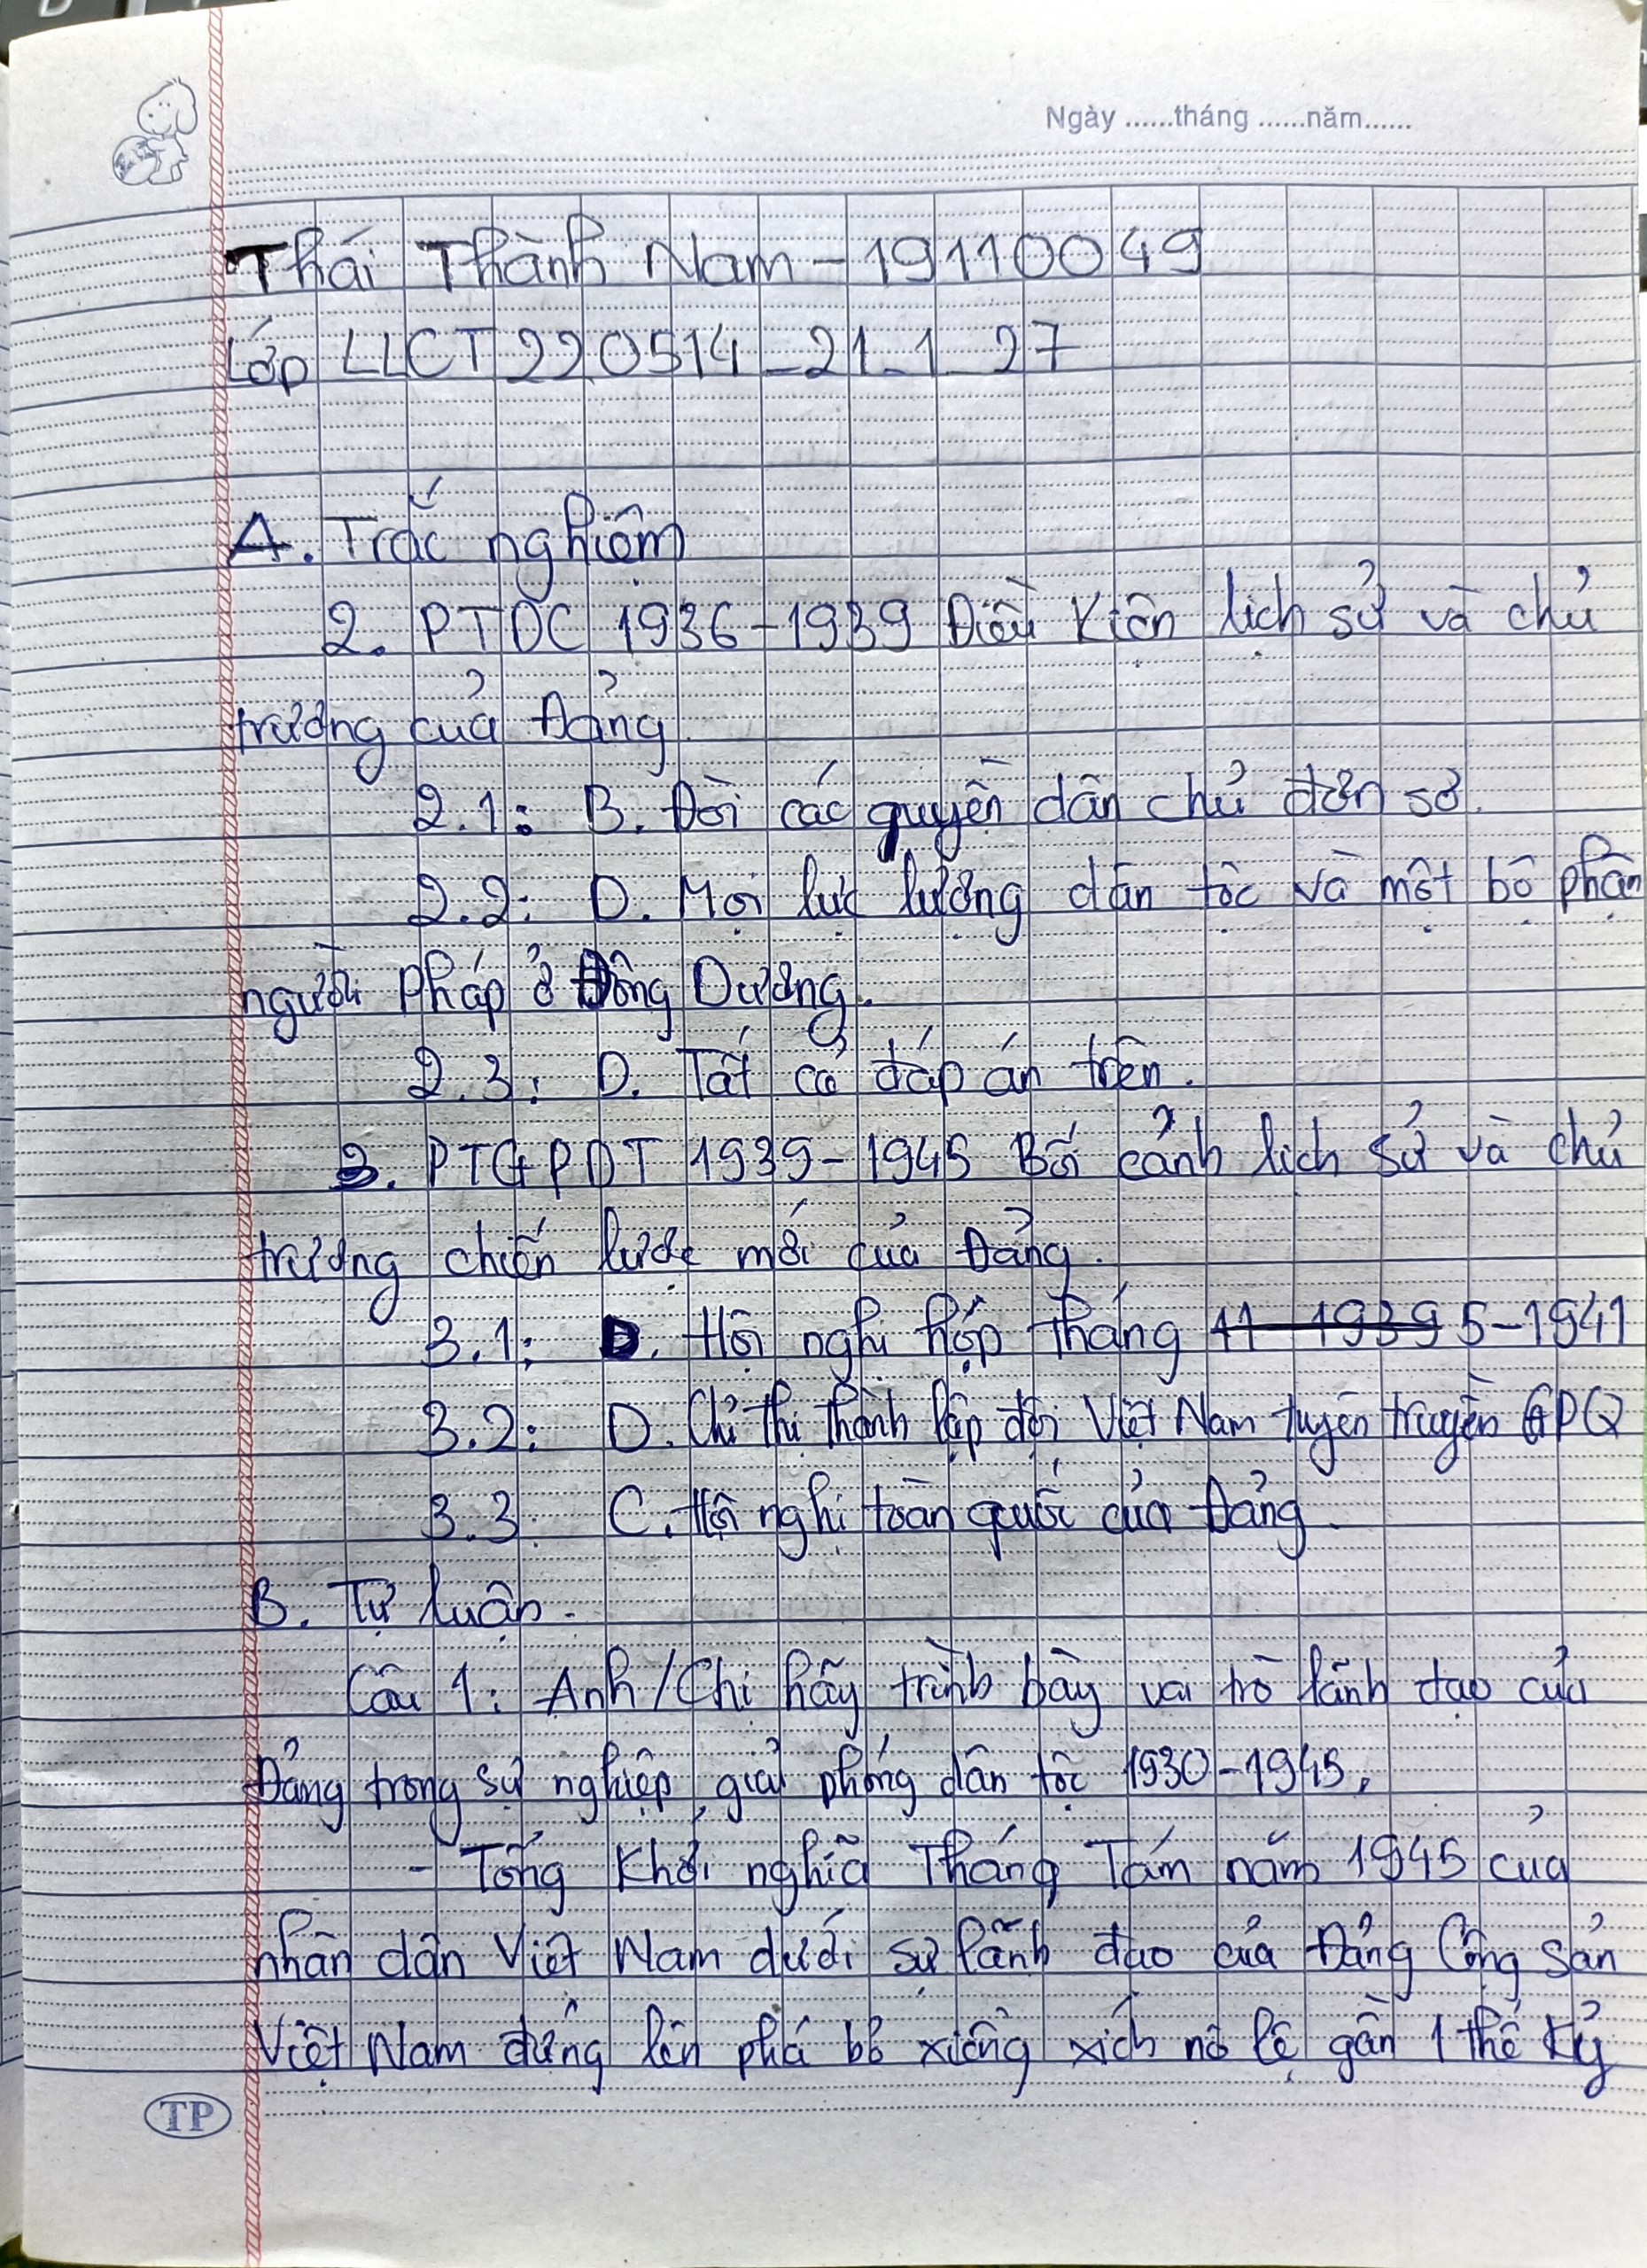 Ngày ......tháng ......năm......
Thái Thành Nam - 19110049
Lớp LLCT220514_21_1_27
A. Trắc nghiệm
2. PTDC 1936-1939 Điều kiện lịch sử và chủ
trương của Đảng
2.1: B. Đòi các quyền dân chủ đơn sơ.
2.2: D. Mọi lực lượng dân tộc và một bộ phận
người Pháp ở Đông Dương.
2.3: D. Tất cả đáp án trên.
3. PTGPDT 1939-1945 Bối cảnh lịch sử và chủ
trương chiến lược mới của Đảng.
3.1: D. Hội nghị họp tháng 11-1939 5-1941
3.2: D. Chỉ thị thành lập đội Việt Nam tuyên truyền GPQ
3.3: C. Hội nghị toàn quốc của Đảng.
B. Tự luận.
Câu 1: Anh/Chị hãy trình bày vai trò lãnh đạo của
Đảng trong sự nghiệp giải phóng dân tộc 1930-1945.
- Tổng khởi nghĩa Tháng Tám năm 1945 của
nhân dân Việt Nam dưới sự lãnh đạo của Đảng Cộng Sản
Việt Nam đứng lên phá bỏ xiềng xích nô lệ gần 1 thế kỷ
TP